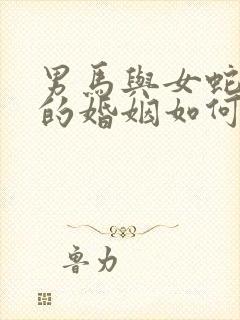 男馬與女蛇
的婚姻如何
魯力